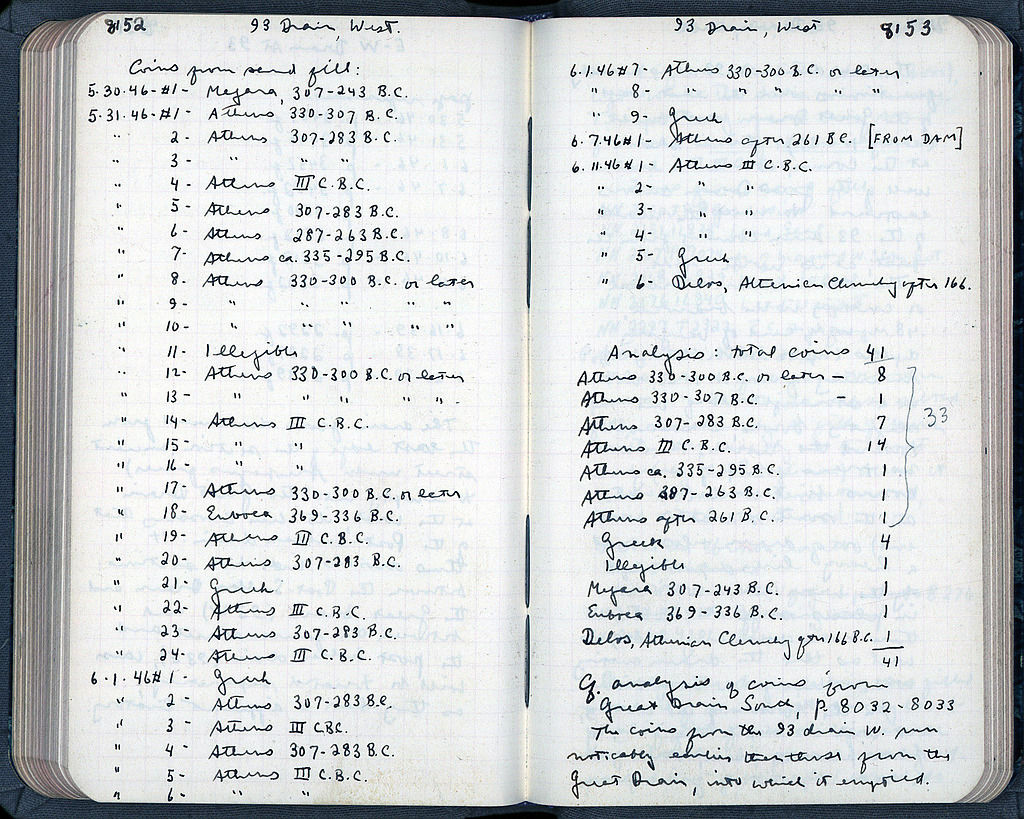 8152
93 Drain, West.
Coins from sand fill:
5.30.46-#1- Megara, 307-243 B.C.
5.31.46-#1- Athens 330-307 B.C.
" 2- Athens 307-283 B.C.
" 3- " " "
" 4- Athens III C.B.C.
" 5- Athens 307-283 B.C.
" 6- Athens 287-263 B.C.
" 7- Athens ca. 335-295 B.C.
" 8- Athens 330-300 B.C. or later
" 9- " " " " "
" 10- " " " " "
" 11- Illegible
" 12- Athens 330-300 B.C. or later
" 13- " " " " "
" 14- Athens III C.B.C.
" 15- " "
" 16- " "
" 17- Athens 330-300 B.C. or later
" 18- Euboea 369-336 B.C.
" 19- Athens III C.B.C.
" 20- Athens 307-283 B.C.
" 21- Greek
" 22- Athens III C.B.C.
" 23- Athens 307-283 B.C.
" 24- Athens III C.B.C.
6.1.46#1- Greek
" 2- Athens 307-283 B.C.
" 3- Athens III C.B.C.
" 4- Athens 307-283 B.C.
" 5- Athens III C.B.C.
" 6- " "
93 Drain, West
8153
6.1.46#7- Athens 330-300 B.C. or later
" 8- " " " " "
" 9- Greek
6.7.46#1- Athens after 261 B.C. [FROM DAM]
6.11.46#1- Athens III C.B.C.
" 2- " "
" 3- " "
" 4- " "
" 5- Greek
" 6- Delos, Athenian Cleruchy after 166.
Analysis: total coins 41
Athens 330-300 B.C. or later - 8
Athens 330-307 B.C. - 1
Athens 307-283 B.C. 7
Athens III C.B.C. 14
33
Athens ca. 335-295 B.C. 1
Athens 287-263 B.C. 1
Athens after 261 B.C. 1
Greek 4
Illegible 1
Megara 307-243 B.C. 1
Euboea 369-336 B.C. 1
Delos, Athenian Cleruchy after 166 B.C. 1
41
Cf. analysis of coins from
Great Drain South, p. 8032-8033
The coins from the 93 drain W. run
noticably earlier than those from the
Great Drain, into which it emptied.